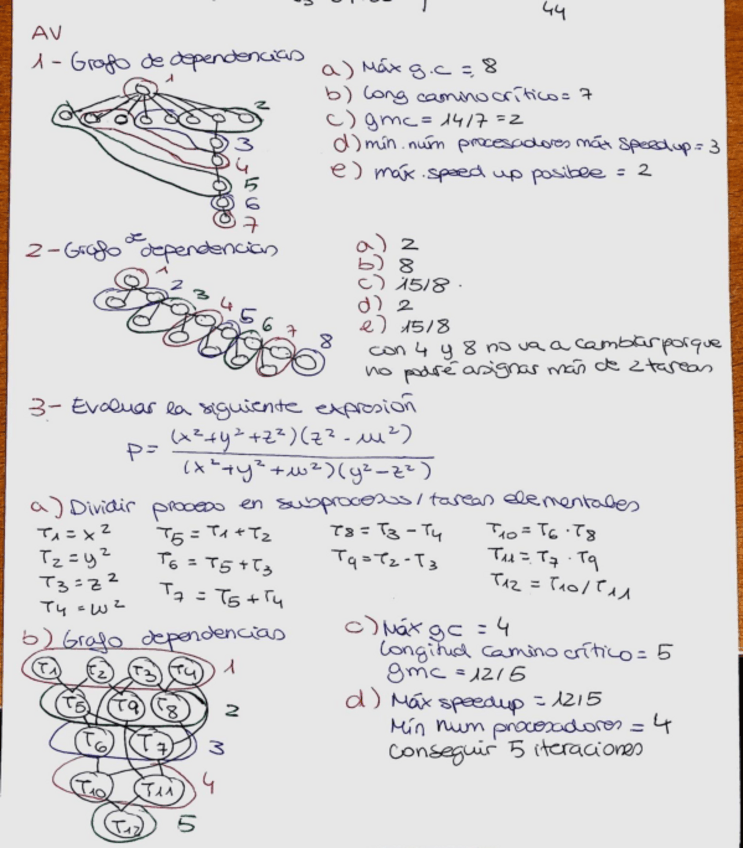 44
AV
1 - Grafo de dependencias
1
2
3
4
5
6
7
a) Máx g.c = 8
b) Long camino crítico = 7
c) gmc = 14/7 = 2
d) mín. núm procesadores máx speedup = 3
e) máx. speed up posible = 2
2 - Grafo de dependencias
1
2
3
4
5
6
7
8
a) 2
b) 8
c) 15/8.
d) 2
e) 15/8
con 4 y 8 no va a cambiar porque
no podré asignar más de 2 tareas
3 - Evaluar la siguiente expresión
P = (x²+y²+z²)(z²-w²) / (x²+y²+w²)(y²-z²)
a) Dividir proceso en subprocesos/tareas elementales
T1 = x² T5 = T1 + T2 T8 = T3 - T4 T10 = T6 · T8
T2 = y² T6 = T5 + T3 T9 = T2 - T3 T11 = T7 · T9
T3 = z² T7 = T5 + T4 T12 = T10/T11
T4 = w²
b) Grafo dependencias
T1 T2 T3 T4 1
T5 T9 T8 2
T6 T7 3
T10 T11 4
T12 5
c) Máx gc = 4
Longitud camino crítico = 5
gmc = 12/5
d) Máx speedup = 12/5
Mín num procesadores = 4
conseguir 5 iteraciones